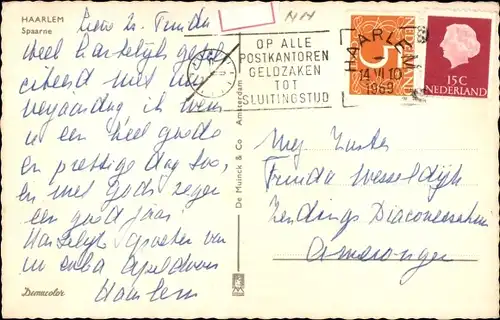 HAARLEM
Spaarne
Lieve Zr. Frieda
Heel hartelijk gefeli
citeerd met uw
verjaardag, ik wens
u een heel goede
en prettige dag toe,
en met Gods zegen
een goed jaar!
Hartelijk groeten van
uw
Haarlem
Dumcolor
De Muinck & Co Amsterdam
OP ALLE
POSTKANTOREN
GELDZAKEN
TOT
SLUITINGSTIJD
HAARLEM
14 VI 10
1969
NEDERLAND
5
15C
NEDERLAND
Mej. Zuster
Frieda Wesseldijk
Zendings Diaconessenhuis
Amerongen